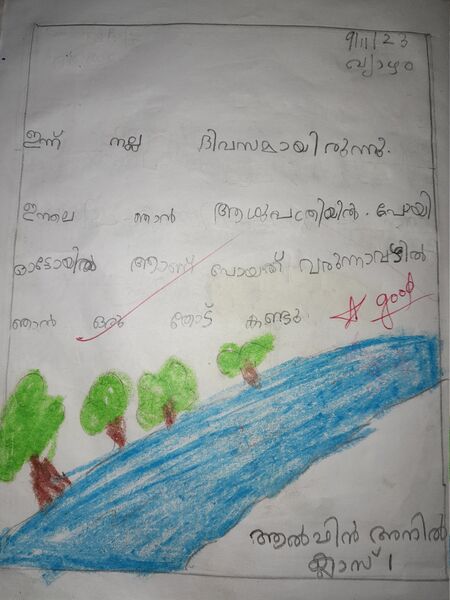 9/11/23
വ്യാഴം
ഇന്ന് നല്ല ദിവസമായിരുന്നു.
ഇന്നലെ ഞാൻ ആശുപത്രിയിൽ. പോയി
ഓട്ടോയിൽ ആണ് പോയത് വരുന്നാവഴിൽ
ഞാൻ ഒരു തോട് കണ്ടു.
good
ആൽഫിൻ അനിൽ
ക്ലാസ് 1